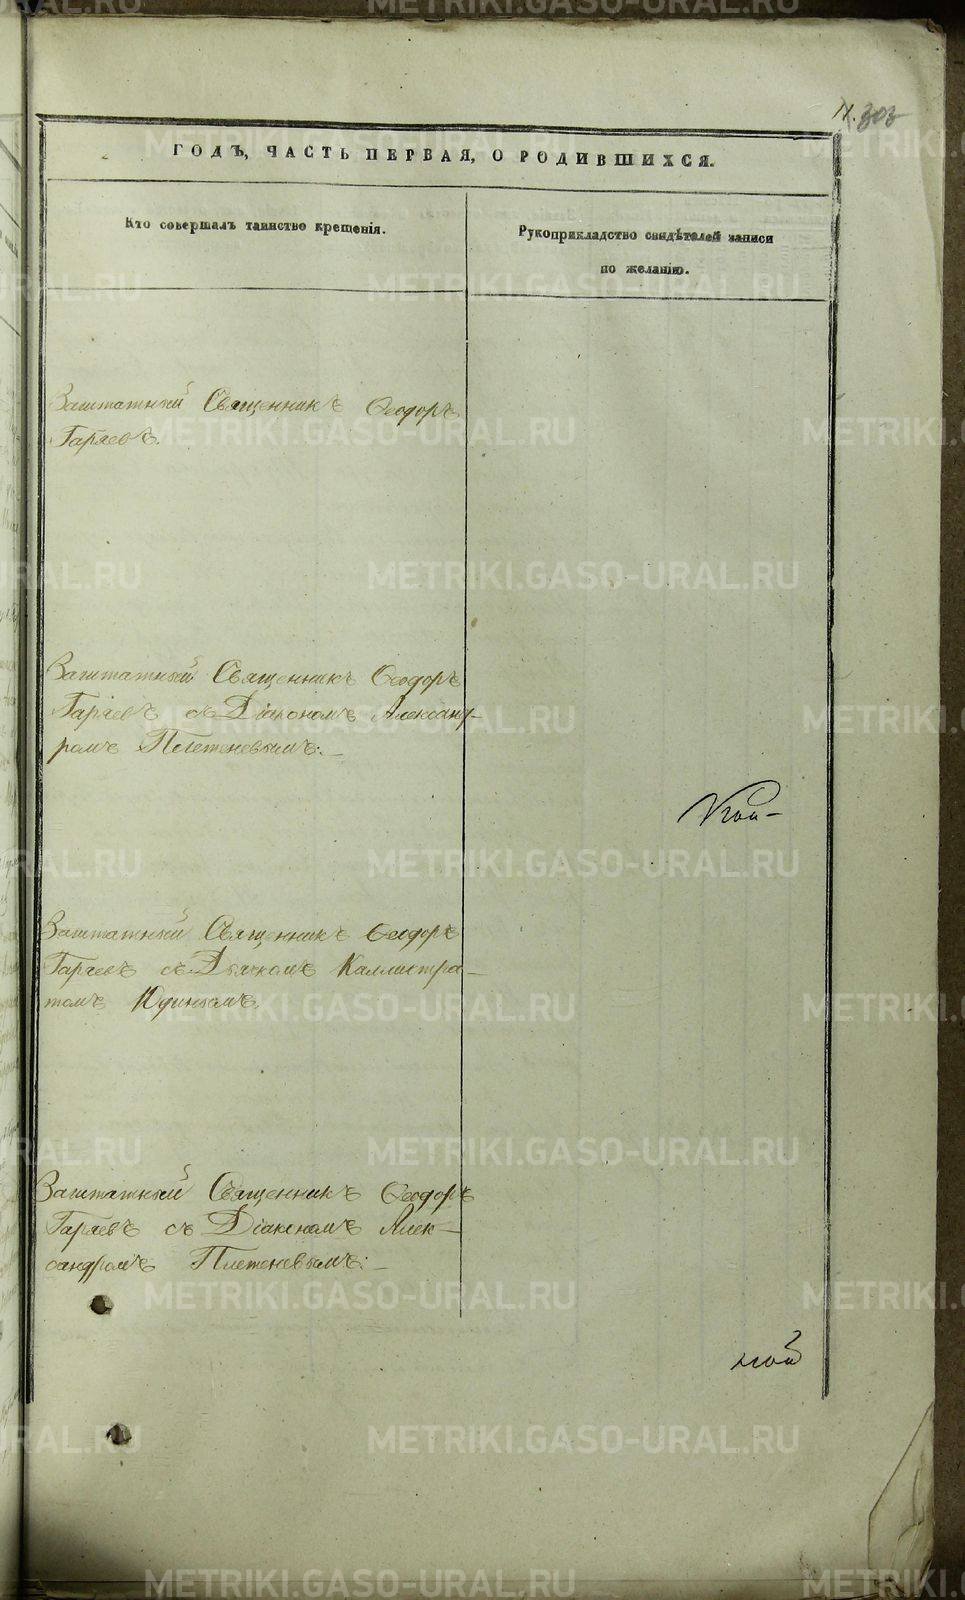 11. 303
ГОДЪ, ЧАСТЬ ПЕРВАЯ, О РОДИВШИХСЯ.
Кто совершалъ таинство крещенія.
Рукоприкладство свидѣтелей записи
по желанію.
Заштатный Священникъ Ѳеодоръ
Гаряевъ.
Заштатный Священникъ Ѳеодоръ
Гаряевъ съ Діакономъ Александ-
ромъ Плетеневымъ:
Заштатный Священникъ Ѳеодоръ
Гаряевъ съ Дьячкомъ Каллистра-
томъ Юдинымъ.
Заштатный Священникъ Ѳеодоръ
Гаряевъ съ Діакономъ Алек-
сандромъ Плетеневымъ:
METRIKI.GASO-URAL.RU